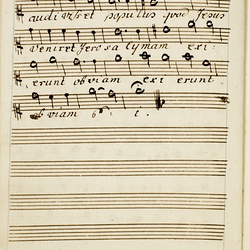 audivisset populus quod Jesus
veniret Jerosalymam exi
erunt obviam exi erunt.
obviam e i.